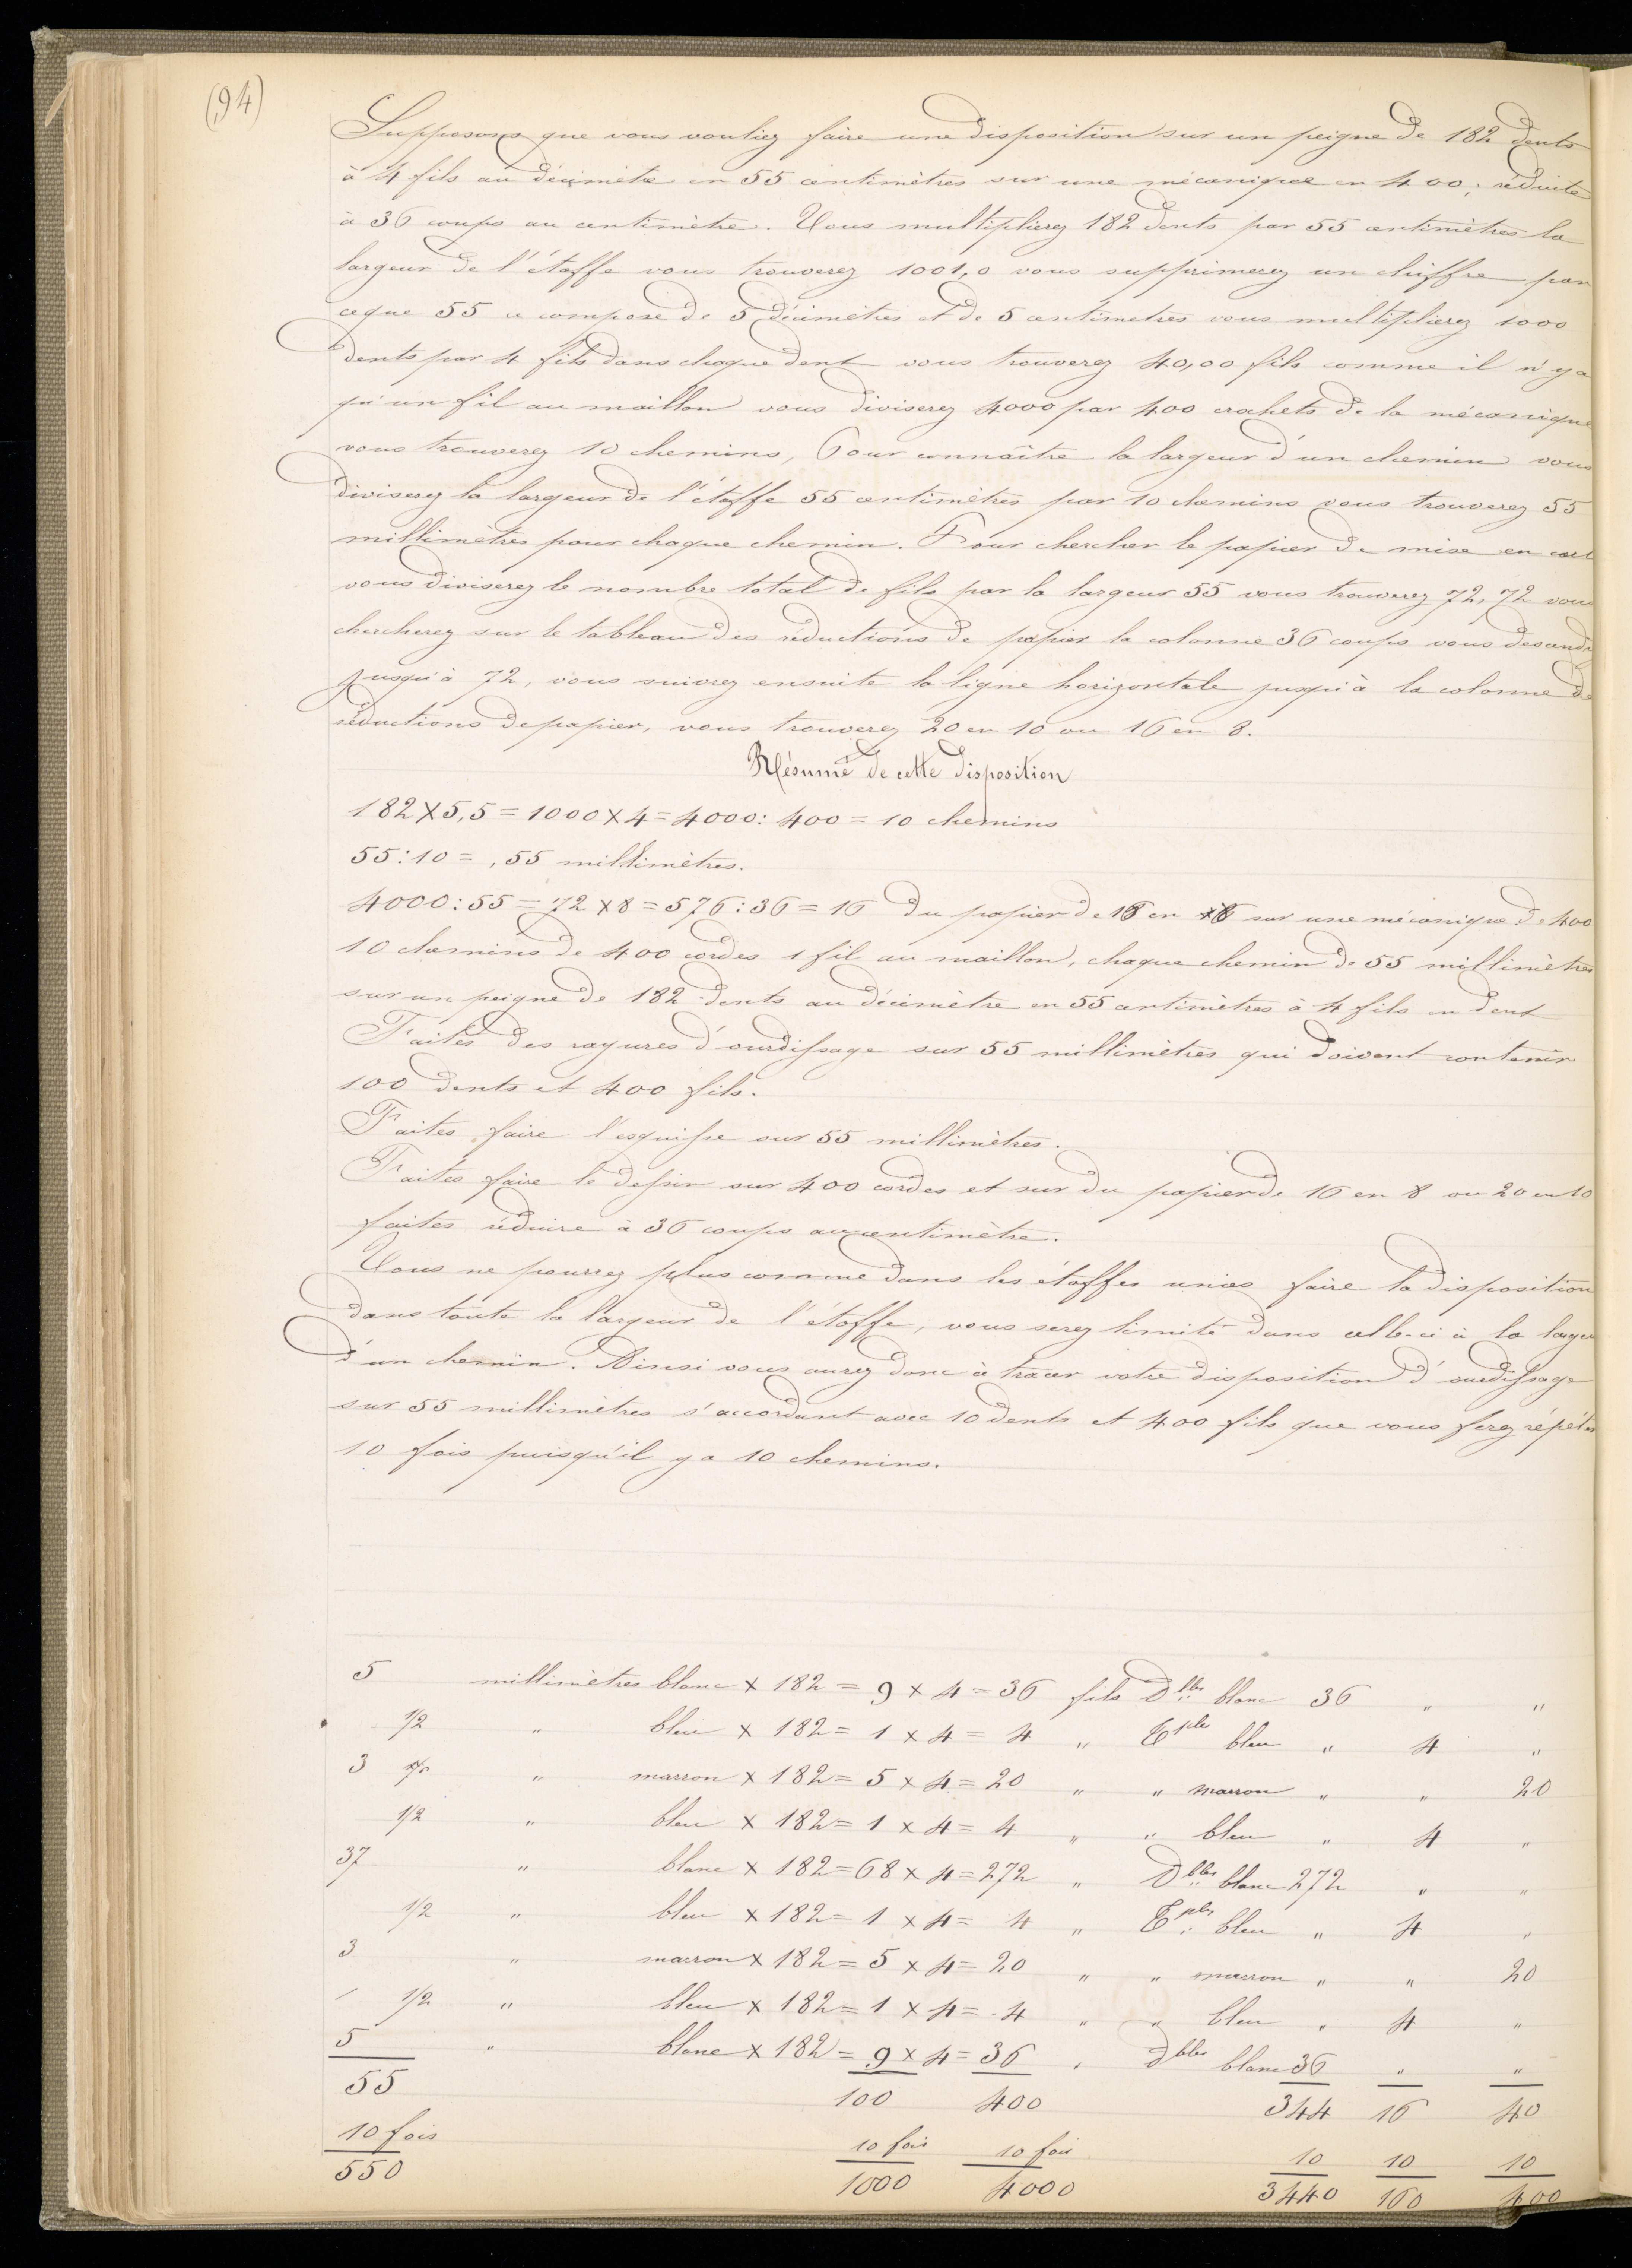 (94)
Supposons que vous vouliez faire une disposition sur un peigne de 182 dents
à 4 fils au décimètre en 55 centimètres sur une mécanique en 400, réduite
à 36 coups au centimètre. Vous multiplierez 182 dents par 55 centimètres la
largeur de l'étoffe vous trouverez 1001,0 vous supprimerez un chiffre par
ceque 55 ce compose de 5 décimètres et de 5 centimetres vous multiplierez 1000
dents par 4 fils dans chaque dent vous trouverez 40,00 fils comme il n'y a
qu'un fil au maillon vous diviserez 4000 par 400 crochets de la mécanique
vous trouverez 10 chemins, Pour connaître la largeur d'un chemin vous
diviserez la largeur de l'étoffe 55 centimètres par 10 chemins vous trouverez 55
millimètres pour chaque chemin. Pour chercher le papier de mise en cart
vous diviserez le nombre total de fils par la largeur 55 vous trouverez 72,72 vous
chercherez sur le tableau des réductions de papier la colonne 36 coups vous descendr
jusqu'à 72, vous suivrez ensuite la ligne horizontale jusqu'à la colonne de
réductions de papier, vous trouverez 20 en 10 ou 16 en 8.
Résumé de cette disposition
182 × 5,5 = 1000 × 4 = 4000 : 400 = 10 chemins
55 : 10 = ,55 millimètres.
4000 : 55 = 72 × 8 = 576 : 36 = 16 du papier de 16 en sur une mécanique de 400
10 chemins de 400 cordes 1 fil au maillon, chaque chemin de 55 millimètres
sur un peigne de 182 dents au décimètre en 55 centimètres à 4 fils en dent
Faites des rayures d'ourdissage sur 55 millimètres qui doivent contenir
100 dents et 400 fils.
Faites faire l'esquisse sur 55 millimètres.
Faites faire le dessin sur 400 cordes et sur du papier de 16 en 8 ou 20 en 10
faites réduire à 36 coups au centimètre.
Vous ne pourrez plus comme dans les étoffes unies faire la disposition
dans toute la largeur de l'étoffe, vous serez limité dans celle-ci à la largeu
d'un chemin. Ainsi vous aurez donc à tracer votre disposition d'ourdissage
sur 55 millimètres s'accordant avec 10 dents et 400 fils que vous ferez répéter
10 fois puisqu'il y a 10 chemins.
5 millimètres blanc × 182 = 9 × 4 = 36 fils Dbles blanc 36 " "
1/2 " bleu × 182 = 1 × 4 = 4 " Tples bleu " 4 "
3 " marron × 182 = 5 × 4 = 20 " " marron " " 20
1/2 " bleu × 182 = 1 × 4 = 4 " " bleu " 4 "
37 " blanc × 182 = 68 × 4 = 272 " Dbles blanc 272 " "
1/2 " bleu × 182 = 1 × 4 = 4 " Tples bleu " 4 "
3 " marron × 182 = 5 × 4 = 20 " " marron " " 20
1/2 " bleu × 182 = 1 × 4 = 4 " " bleu " 4 "
5 " blanc × 182 = 9 × 4 = 36 " Dbles blanc 36 " "
55 100 400 344 16 40
10 fois 10 fois 10 fois 10 10 10
550 1000 4000 3440 160 400